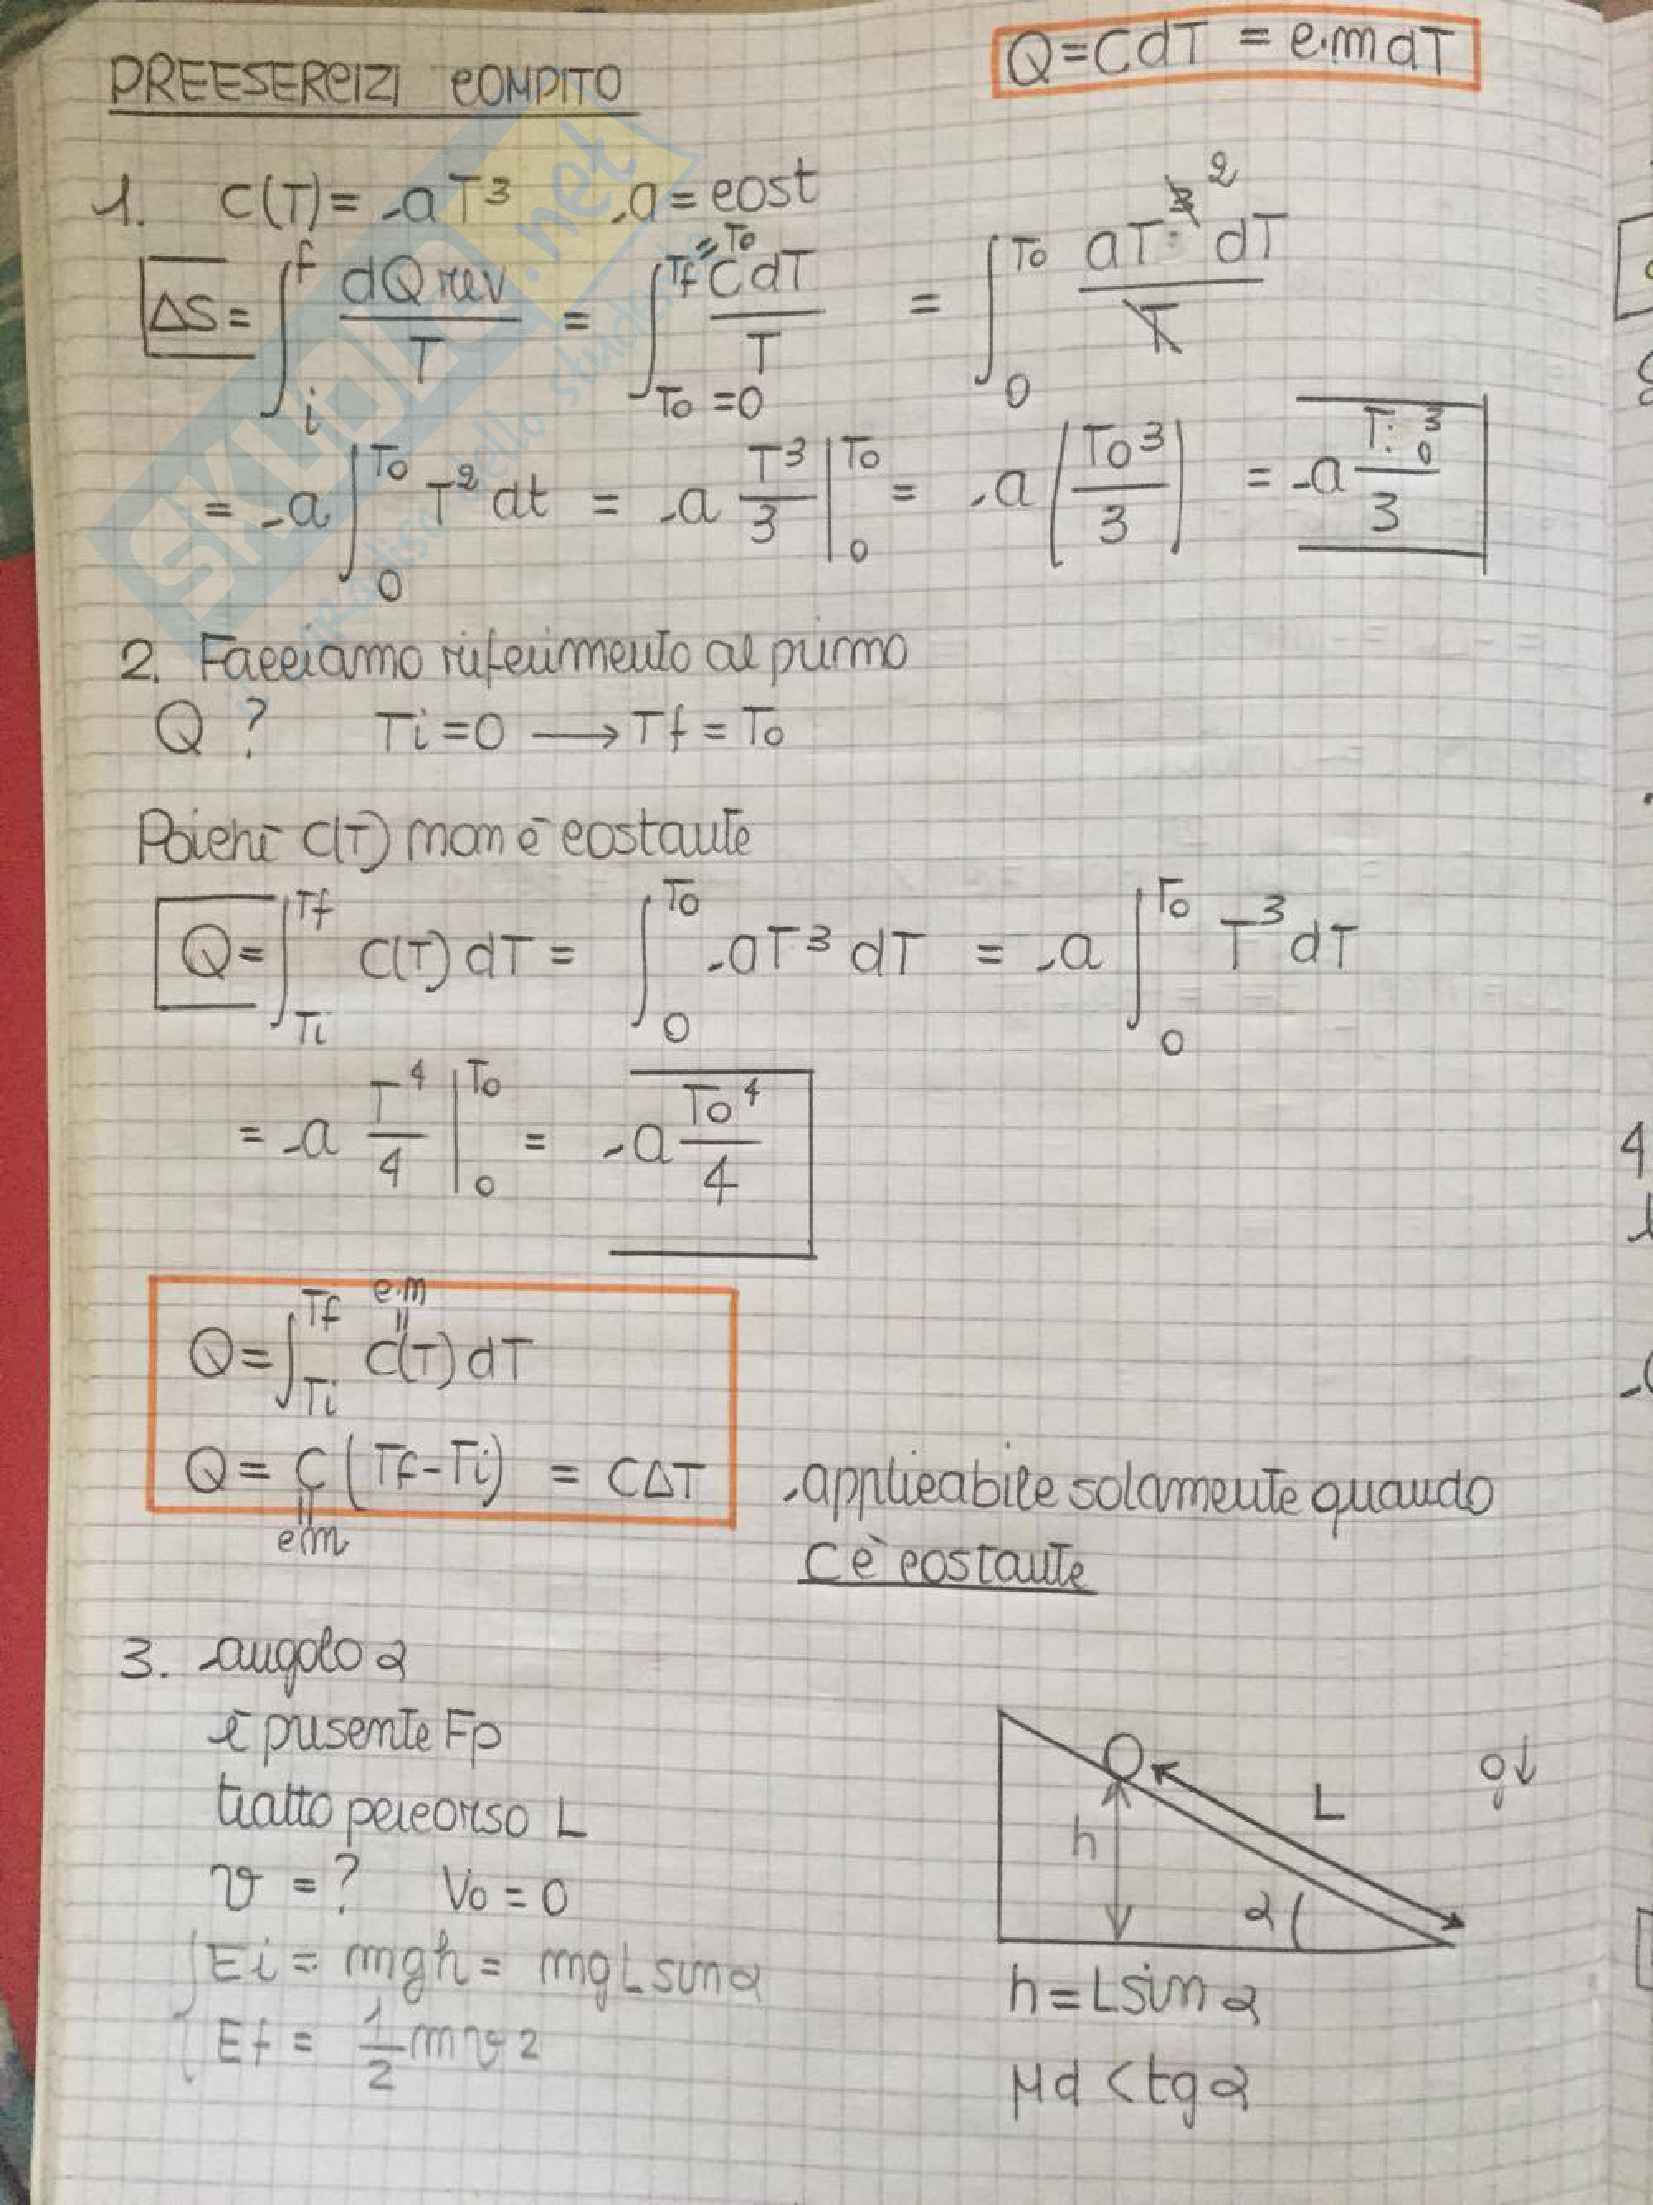 PREESERCIZI COMPITO
Q=CdT = c·mdT
1. C(T)= aT³ a=cost
ΔS = ∫_i^f dQrev/T = ∫_{To=0}^{Tf=To} CdT/T = ∫_0^{To} aT² dT/T
= a ∫_0^{To} T² dt = a T³/3 |_0^{To} = a (To³/3) = a To³/3
2. Facciamo riferimento al primo
Q ? Ti=0 → Tf=To
Poiché C(T) non è costante
Q= ∫_{Ti}^{Tf} C(T) dT = ∫_0^{To} aT³ dT = a ∫_0^{To} T³ dT
= a T⁴/4 |_0^{To} = a To⁴/4
c·m
Q= ∫_{Ti}^{Tf} C(T) dT
Q= C (Tf-Ti) = CΔT applicabile solamente quando
c·m
C è costante
3. angolo α
è presente Fp
tratto percorso L
v = ? Vo = 0
Ei = mgh = mgLsinα
Ef = 1/2 mv²
h
L
α
g↓
h=Lsinα
μd < tgα
SKUOLA.net